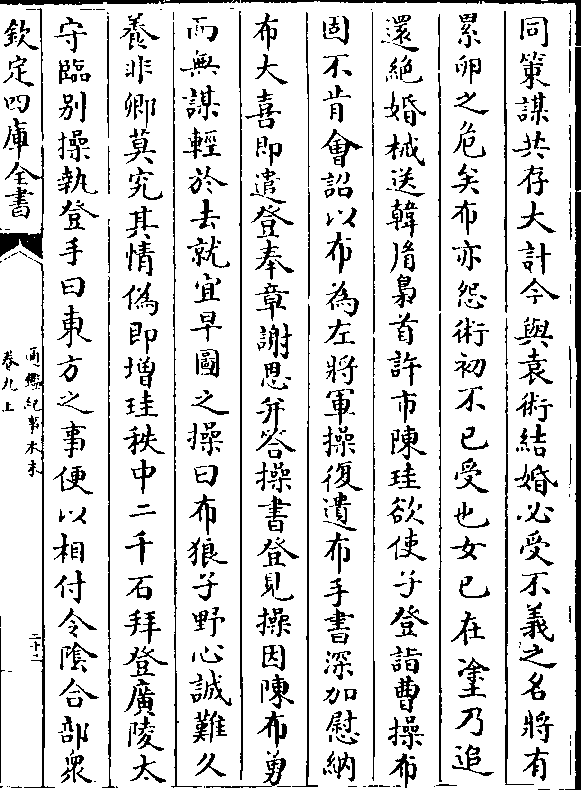 同策謀共存大計今與袁術結婚必受不義之名將有
累卵之危矣布亦怨術初不已受也女已在塗乃追
還絶婚械送韓𦙍梟首許市陳珪欲使子登詣曹操布
固不肯會詔以布為左將軍操復遺布手書深加慰納
布大喜即遣登奉章謝恩并答操書登見操因陳布勇
而無謀輕於去就宜早圖之操曰布狼子野心誠難久
養非卿莫究其情偽即增珪秩中二千石拜登廣陵太
守臨别操執登手曰東方之事便以相付令隂合部衆
欽定四庫全書
通鑑紀事本末
卷九上
二十二